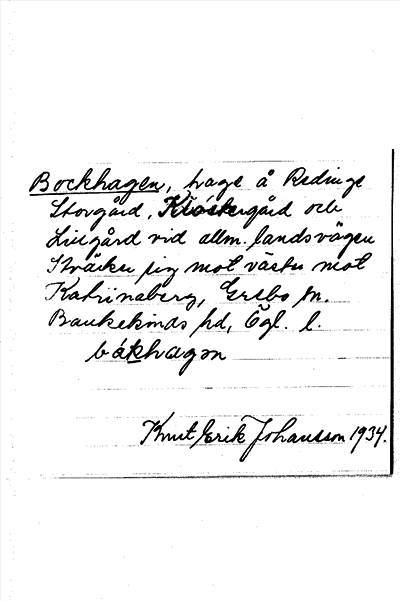 Bockhagen, hage å Redinge
Storgård, Klostergård och
Lillgård vid allm. landsvägen
Sträcker sig mot väster mot
Katrineberg, Grebo sn.
Bankekinds hd, Ögl. l.
båkhagən
Knut Erik Johansson 1934.